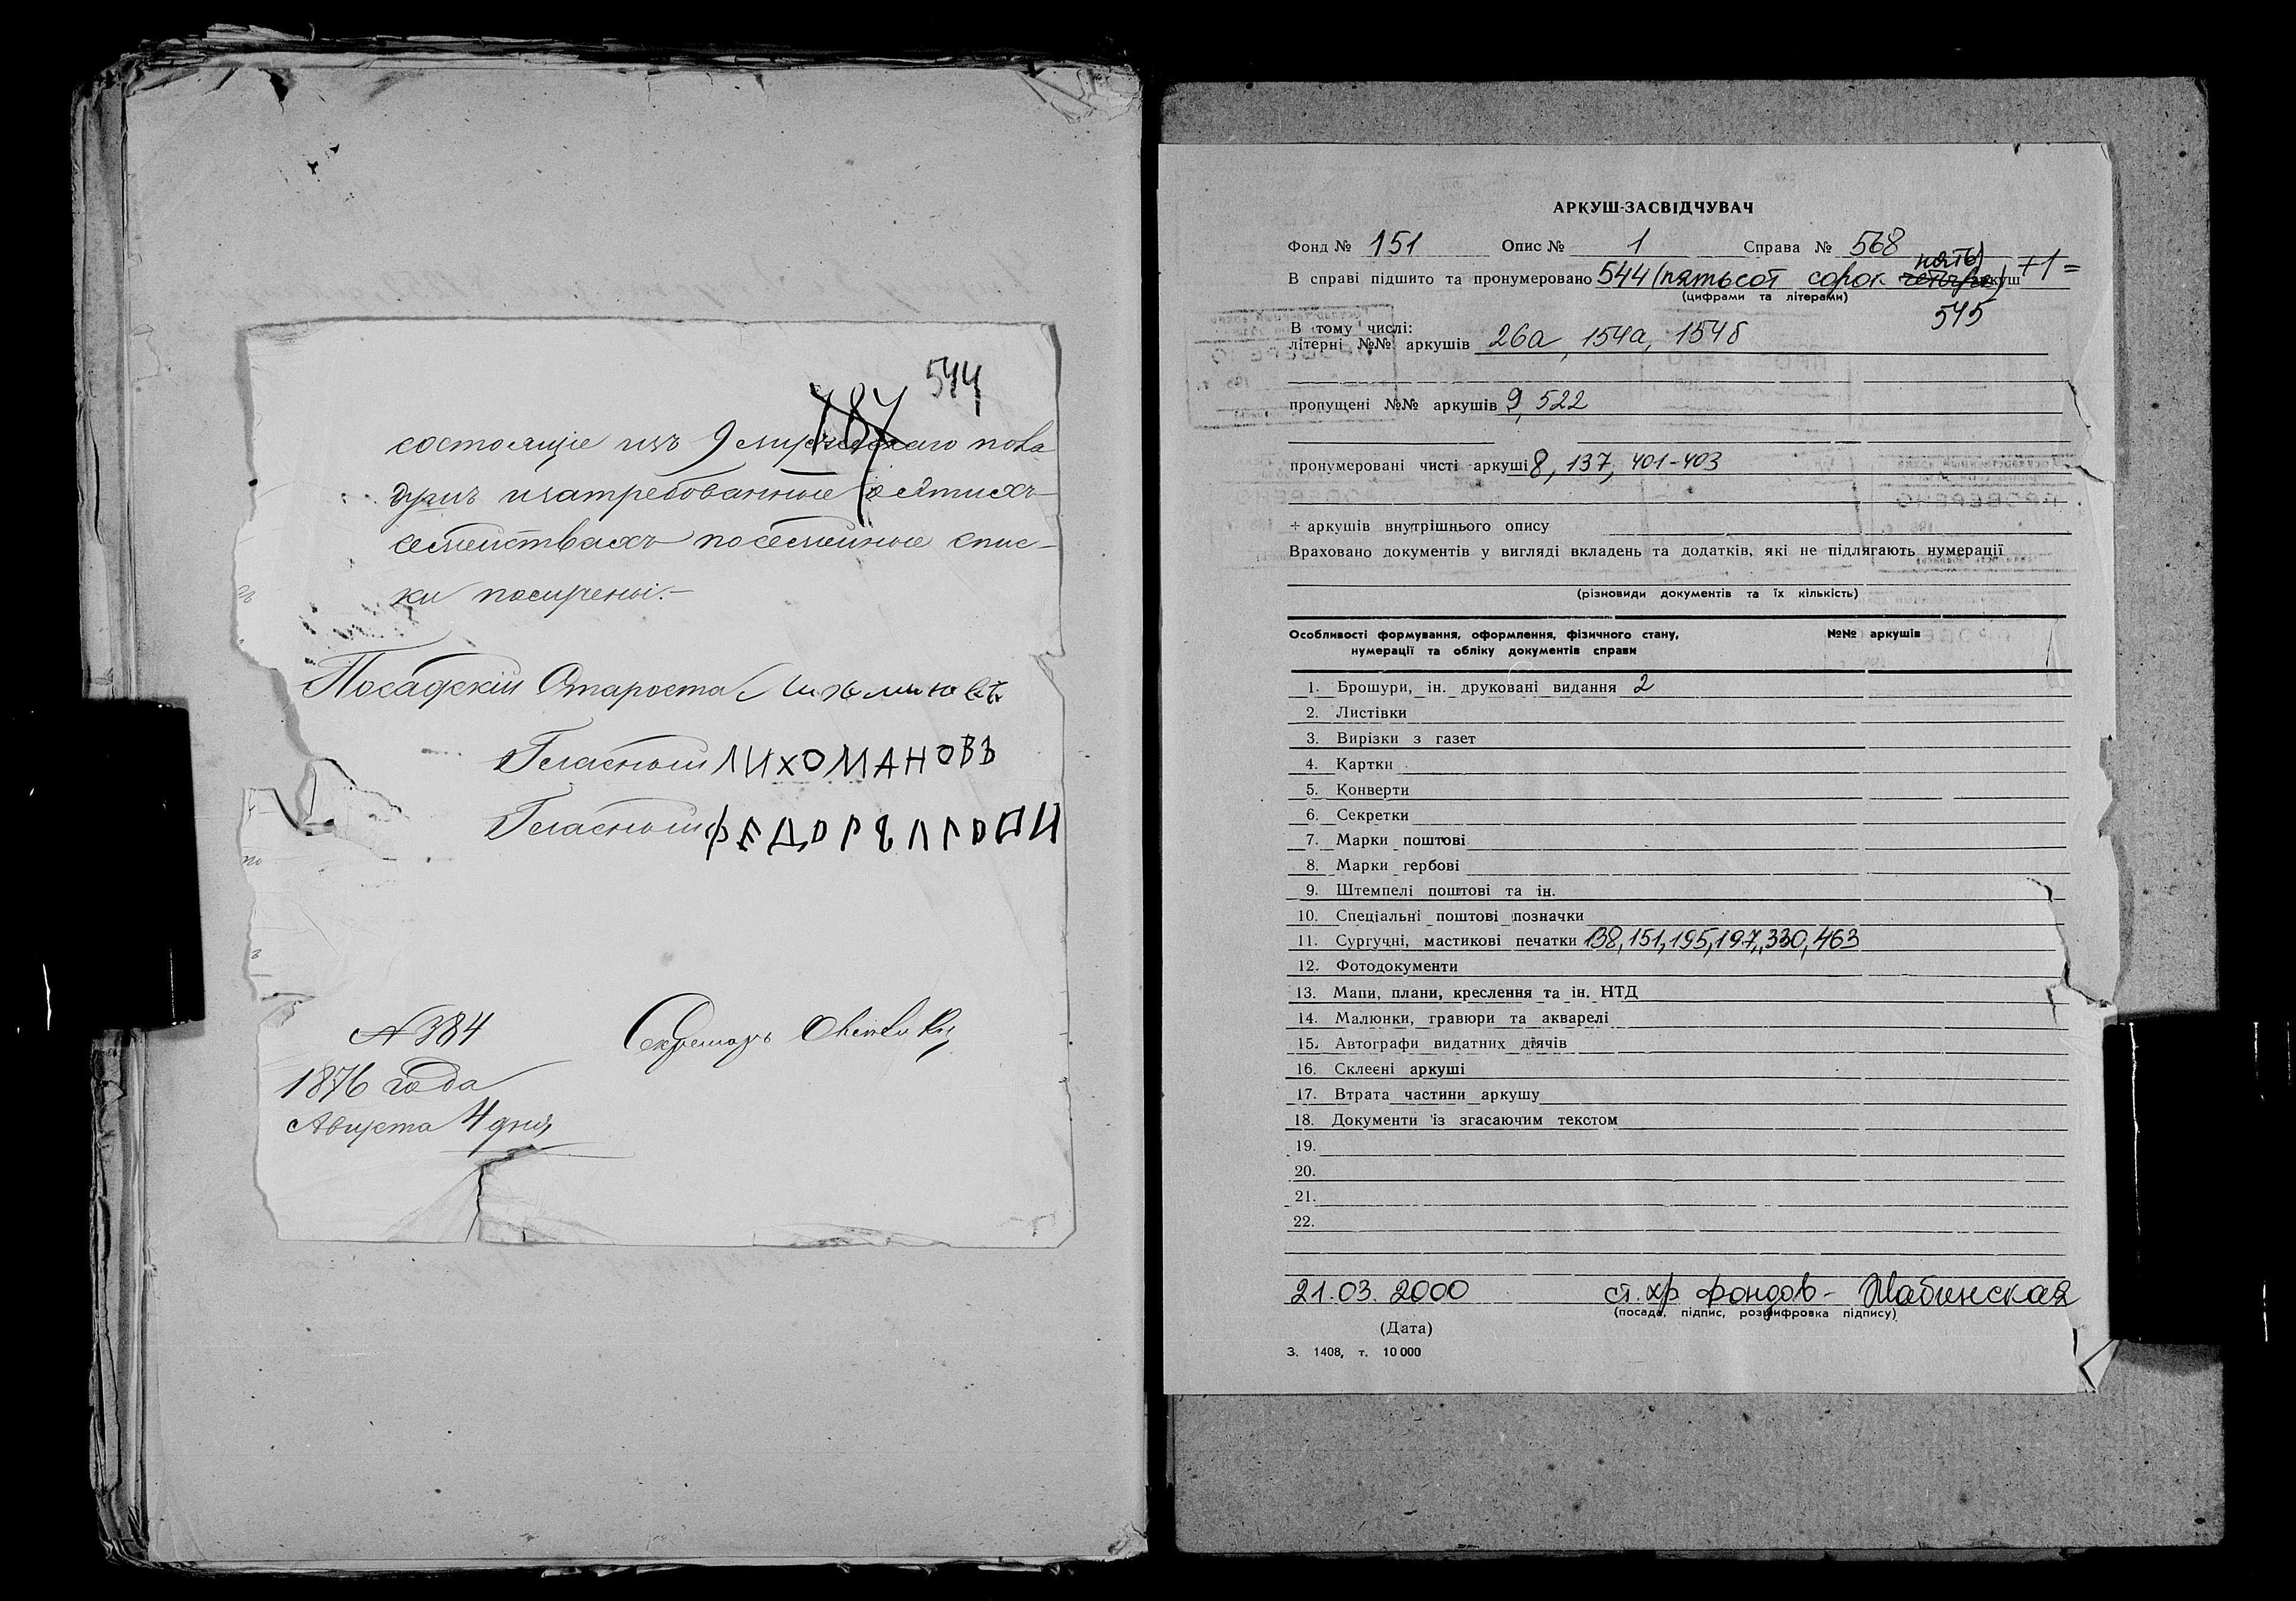 544
787
состоящіе изъ
затребованные о сѣтихъ
семействахъ посемейные спис-
ки
Посадскій Староста
Гласный ЛИХОМАНОВЪ
Гласный ФЕДОРЪ
№ 384
Секретарь
1876 года
Августа 4 дня
АРКУШ-ЗАСВІДЧУВАЧ
Фонд № 151 Опис № 1 Справа № 568
пять)
В справі підшито та пронумеровано 544 (пятьсот сорок четыре) аркуш +1=
(цифрами та літерами)
545
В тому числі:
літерні №№ аркушів 26а, 154а, 154б
пропущені №№ аркушів 9, 522
пронумеровані чисті аркуші 8, 137, 401-403
+ аркушів внутрішнього опису
Враховано документів у вигляді вкладень та додатків, які не підлягають нумерації
(різновиди документів та їх кількість)
Особливості формування, оформлення, фізичного стану, №№ аркушів
нумерації та обліку документів справи
1. Брошури, ін. друковані видання 2
2. Листівки
3. Вирізки з газет
4. Картки
5. Конверти
6. Секретки
7. Марки поштові
8. Марки гербові
9. Штемпелі поштові та ін.
10. Спеціальні поштові позначки
11. Сургучні, мастикові печатки 138, 151, 195, 197, 330, 463
12. Фотодокументи
13. Мапи, плани, креслення та ін. НТД
14. Малюнки, гравюри та акварелі
15. Автографи видатних діячів
16. Склеєні аркуші
17. Втрата частини аркушу
18. Документи із згасаючим текстом
19.
20.
21.
22.
21.03.2000 ст. хр фондов - Шабинская
(посада, підпис, розшифровка підпису)
(Дата)
З. 1408, т. 10 000